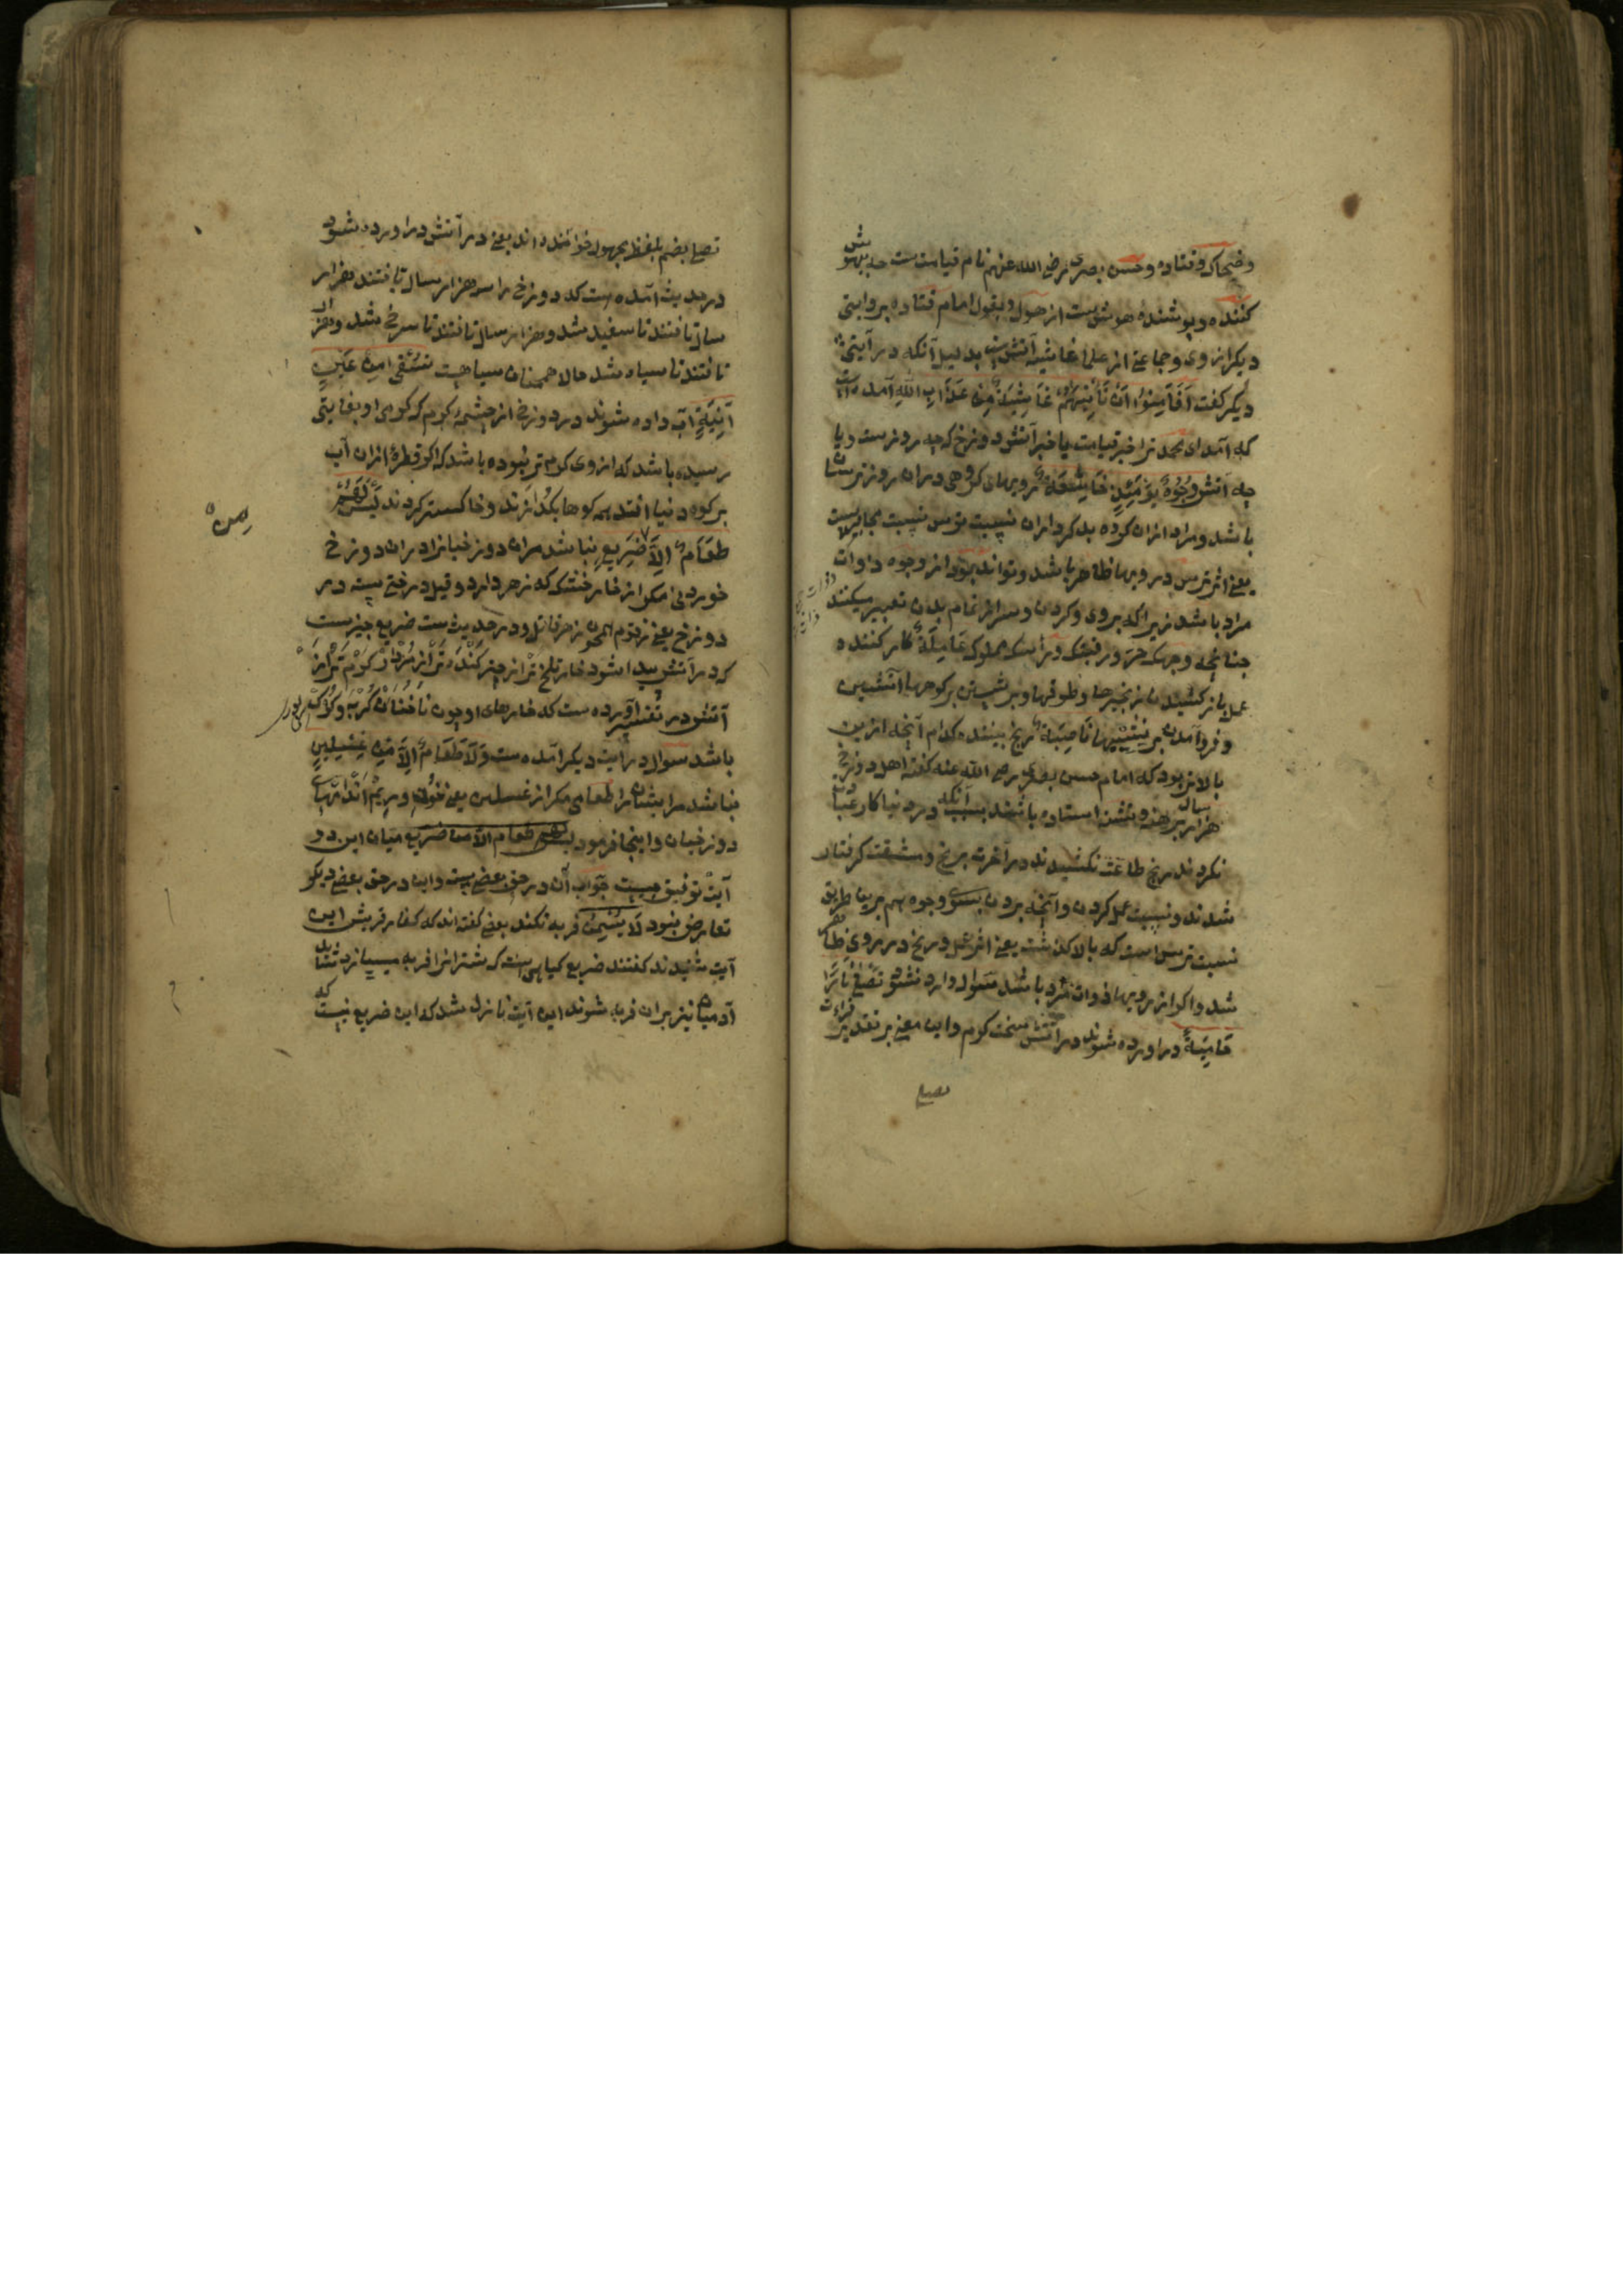 وضحاک وقتاده وحسن بصری رضی الله عنهم نام قیامت ست چه بیهوش
کننده وپوشندهٔ هوش ست از هول وبقول امام قتاده بروایتی
دیکر ازوی وجماعتی از علما غاشیه آتش ست بدلیل آنکه در آیتی
دیکر کفت اَفَاَمِنُوا اَنْ تَأْتِیَهُمْ غَاشِیَةٌ مِنْ عَذَابِ اللهِ آمده است
که آمد ای محمد ترا خبر قیامت یا خبر آتش دوزخ که چه روزست ویا
چه آتش وُجُوهٌ یَوْمَئِذٍ خَاشِعَةٌ رویهای کروهی دران روز ترسان
باشد ومراد ازان کرده بدکرداران نسبت ترس نسبت مجازیست
یعنی اثر ترس در رویها ظاهر باشد وتواند بود از وجوه ذوات
مراد باشد زیراکه بروی وکردن وسر از تمام بدن تعبیر میکنند
چنانچه وجهک حر ورقبتک وراسک مملوک عَامِلَةٌ کار کننده
عمل باز کشیدن زنجیرها وطوقها وبر شدن بر کوهها آتشین
وفرو آمدن بر نشیبها نَاصِبَةٌ رنج بیننده کدام آنچه ازین
بالاتر بود که امام حسن بصری رضی الله عنه کفته اهل دوزخ
هزار سال برهنه وتشنه استاده باشند بسبب آنکه در دنیا کار عبادت
نکردند رنج طاعت نکشیدند در آخرت برنج ومشقت کرفتار
شدند ونسبت عمل کردن وآنچه بردن بسوی وجوه هم برین طریق
نسبت ترس است که بالا کذشت یعنی اثر عمل ورنج در روی ظاهر
شد واکر از رویها ذوات مراد باشد سوال وارد نشود تَصْلَی نَارًا
حَامِیَةً دراورده شوند در آتش سخت کرم واین معنی بر تقدیر قراءت
تصلی
تصلی بضم بلفظ مجهول خوانده اند یعنی در آتش دراورده شود
در حدیث آمده ست که دوزخ را سه هزار سال تافتند هزار
سال تافتند تا سفید شد وهزار سال تافتند تا سرخ شد وهزار
تافتند تا سیاه شد حالا همچنان سیاهست تُسْقَی مِنْ عَیْنٍ
آنِیَةٍ آب داده شوند در دوزخ از چشمهٔ کرم که کرمی او بغایتی
رسیده باشد که ازوی کرم تر نبوده باشد که اکر قطرهٔ ازان آب
بر کوه دنیا افتد همه کوهها بکدازند وخاکستر کردند لَیْسَ لَهُمْ
طَعَامٌ اِلَّا ضَرِیعٍ نباشد مران دوزخیانرا دران دوزخ
من
خوردنی مکر از خار خشک که زهر دارد وقیل درختی ست در
دوزخ یعنی زقوم همچون زهر قاتل ودر حدیث ست ضریع چیزیست
که در آتش پیدا شود خار تلخ تر از چیز کنده تر از مردار کرم تر از
آتش در تفسیر آورده ست که خارهای او چون ناخنان کربه وکلاک
باشد سوال در آیت دیکر آمده ست وَلَا طَعَامٌ اِلَّا مِنْ غِسْلِینٍ
نباشد مرایشان را طعامی مکر از غسلین یعنی خون وریم اندامهای
دوزخیان واینجا فرمود لیس لهم طعام الا من ضریع میان این دو
آیت توفیق چیست جواب آن در حق بعضی ست واین در حق بعضی دیکر
تعارض نبود لَا یُسْمِنُ فربه نکند بعضی کفته اند که کفار قریش این
آیت شنیدند کفتند ضریع کیاهی است که شترانرا فربه میسازد شاید
آدمیان نیز بران فربه شوند این آیت نازل شد که این ضریع نیست که